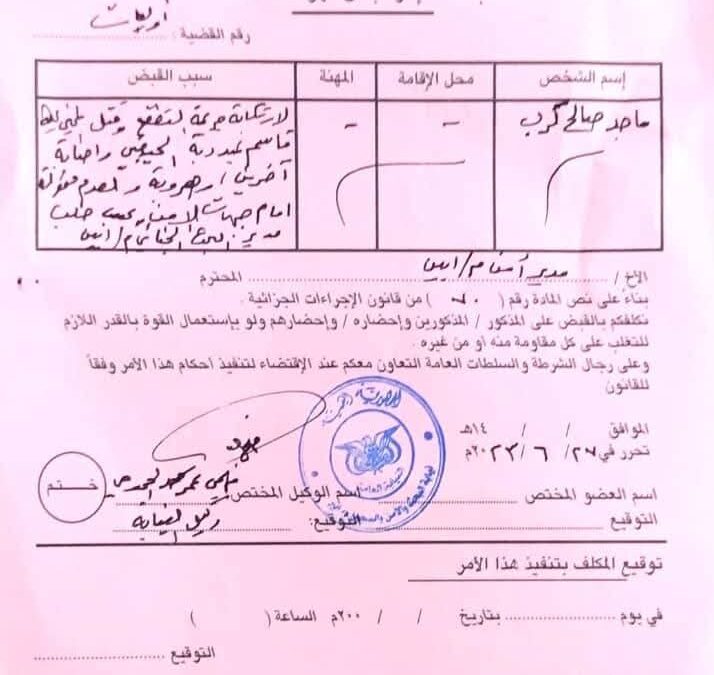 أوليات
رقم القضية :
إسم الشخص
محل الإقامة
المهنة
سبب القبض
ماجد صالح كرب
-
-
لارتكابه جريمة التقطع وقتل
قاسم عبدربه
آخرين /
امام جهات الامن بحسب طلب
مدير البحث الجنائي م/ابين
الأخ / مدير أمن م/ابين المحترم
بناءً على نص المادة رقم ( ٧٠ ) من قانون الإجراءات الجزائية .
نكلفكم بالقبض على المذكور / المذكورين وإحضاره / وإحضارهم ولو بإستعمال القوة بالقدر اللازم
للتغلب على كل مقاومة منه او من غيره .
وعلى رجال الشرطة والسلطات العامة التعاون معكم عند الإقتضاء لتنفيذ أحكام هذا الأمر وفقاً
للقانون
الموافق / / ١٤هـ
تحرر في ٢٧/ ٦ /٢٠٢٣م
ختم
اسم العضو المختص
اسم الوكيل المختص
التوقيع
التوقيع:
وكيل النيابة
توقيع المكلف بتنفيذ هذا الأمر
في يوم بتاريخ / / ٢٠٠م الساعة ( )
التوقيع